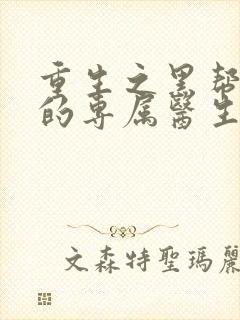 重生之黑幫
的專属醫生
文森特聖瑪麗